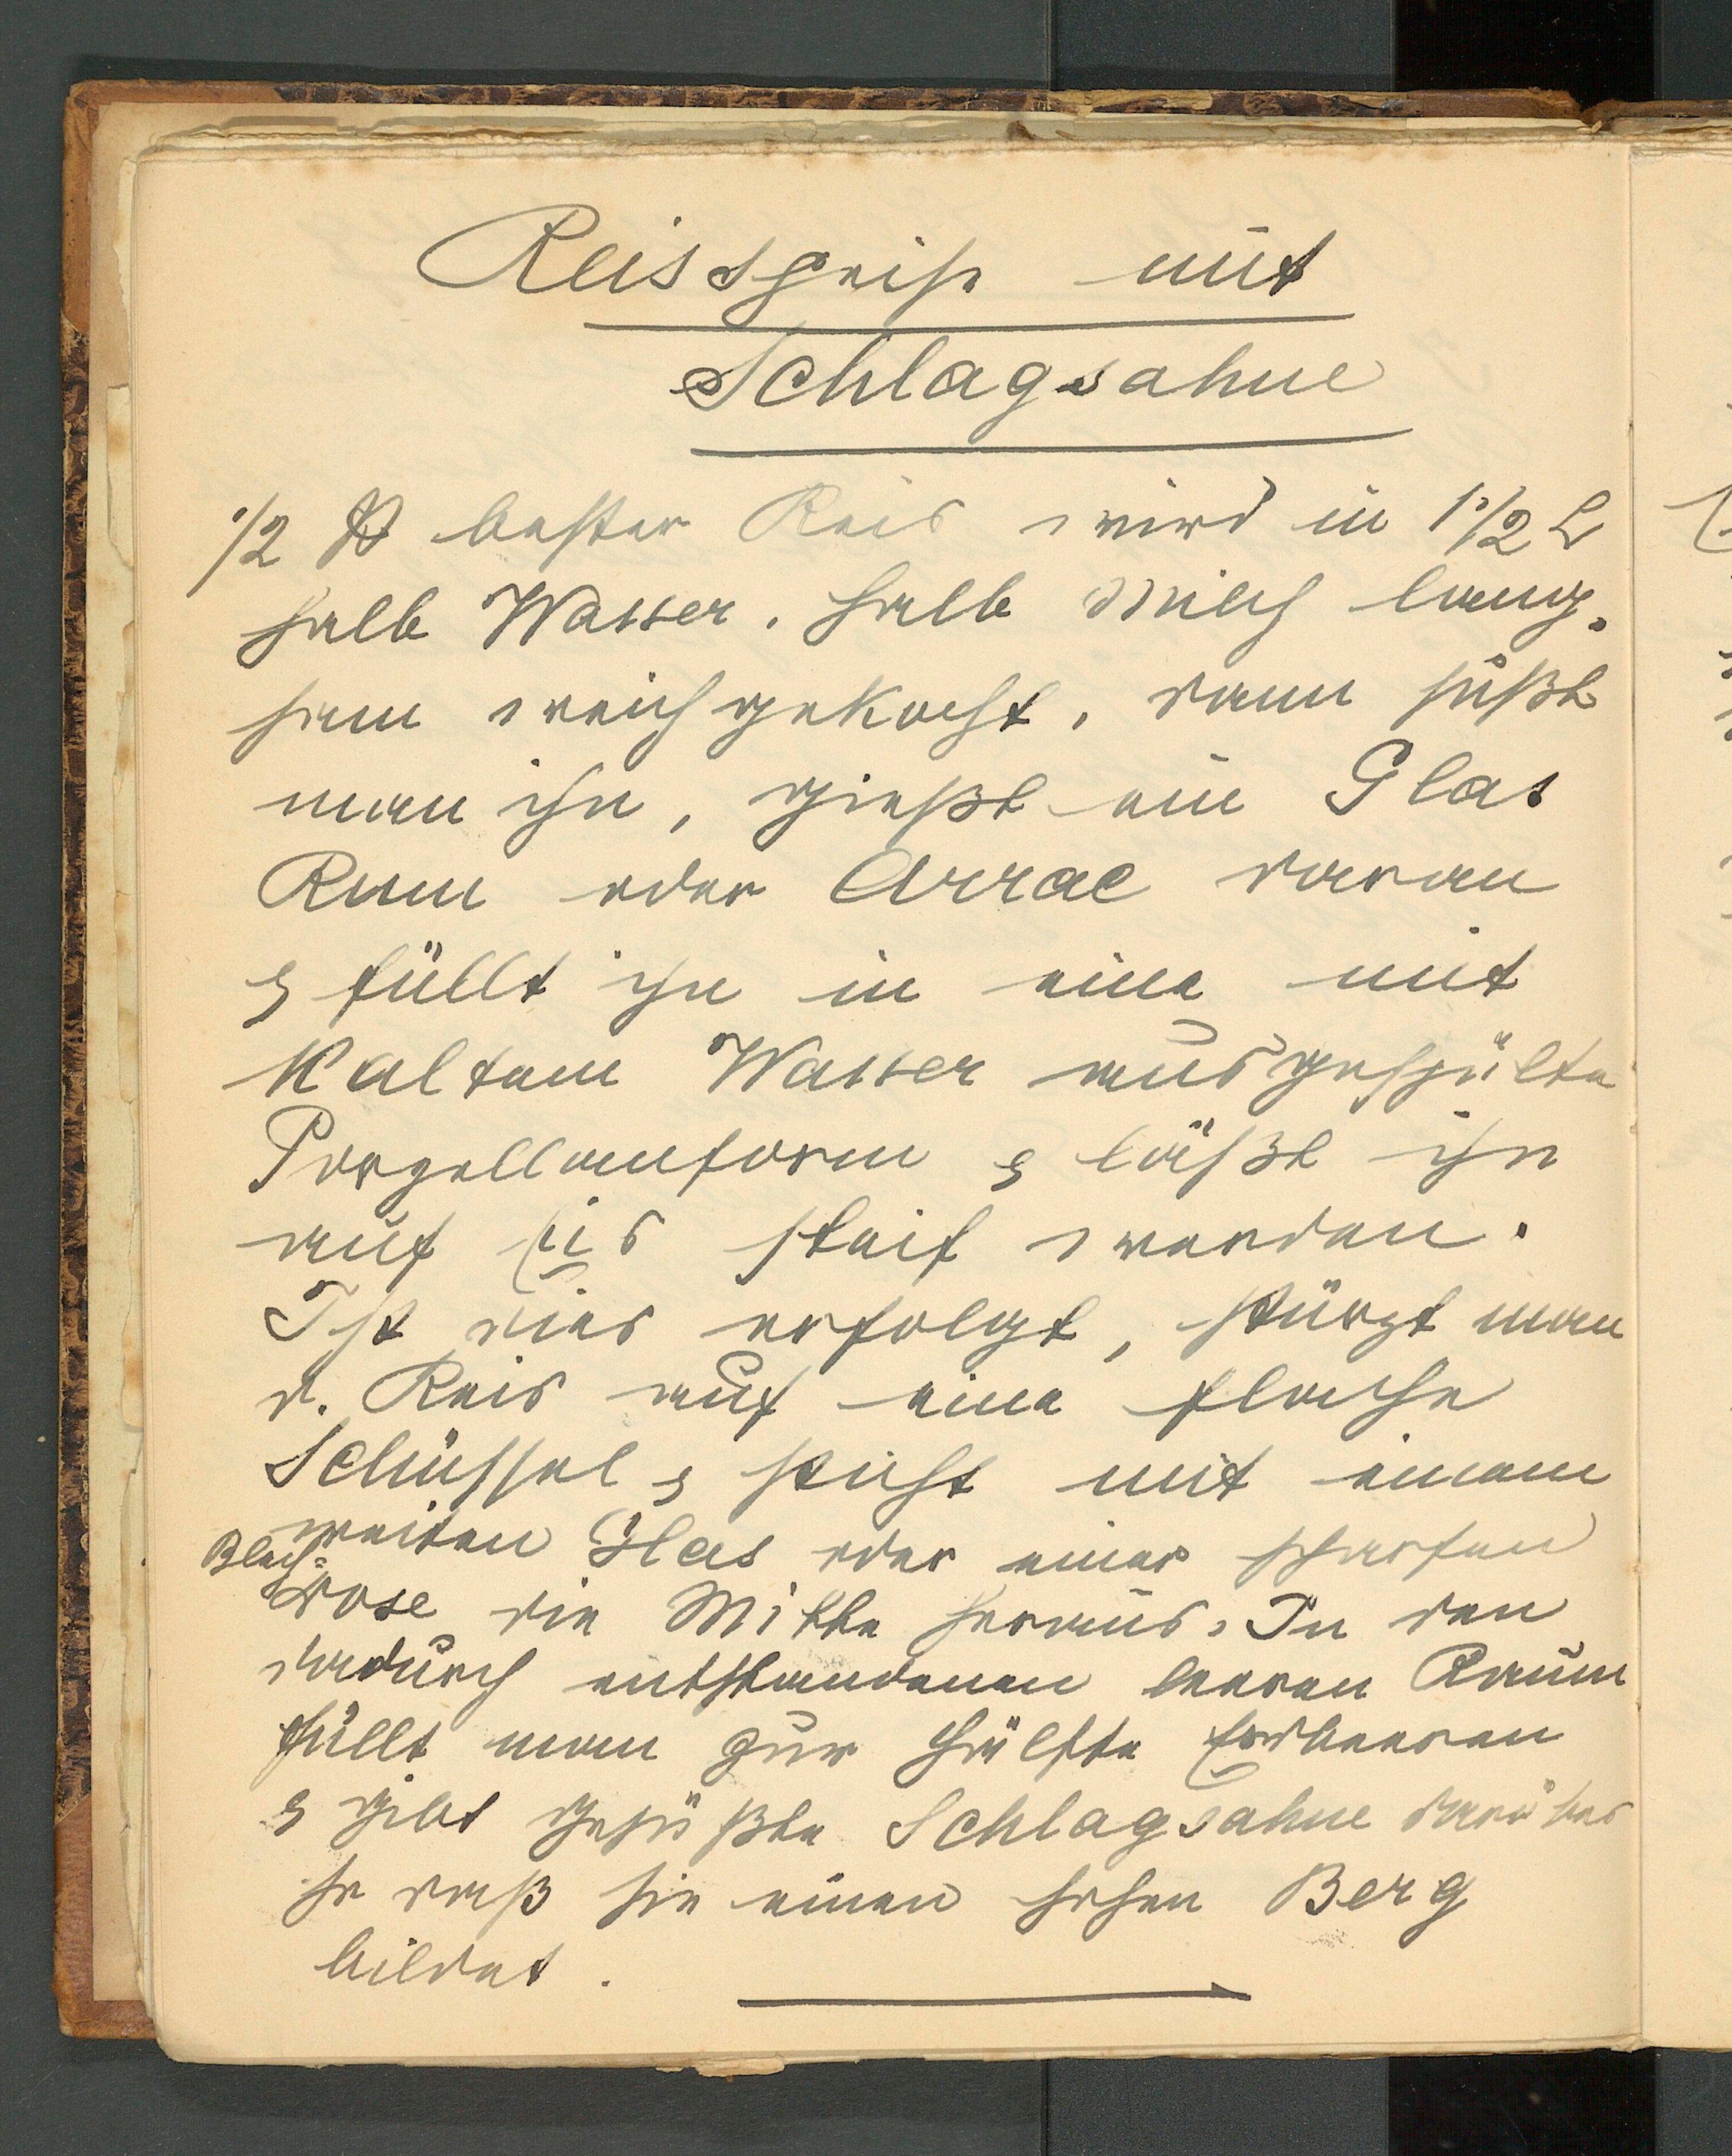 Reisspeise mit
Schlagsahne
1/2 ℔ bester Reis wird in 1 1/2 L
halb Wasser, halb Milch lang-
sam weich gekocht, dann süßt
man ihn, gießt ein Glas
Rum oder Arrac daran
& füllt ihn in eine mit
kaltem Wasser ausgespülte
Porzellanform & läßt ihn
auf Eis steif werden.
Ist dies erfolgt, stürzt man
d. Reis auf eine flache
Schüssel & sticht mit einem
weiten Glas oder einer scharfen
Blech=
dose die Mitte heraus. In den
dadurch entstandenen leeren Raum
füllt man zur Hälfte Erdbeeren
& gibt gesüßte Schlagsahne darüber
so daß sie einen hohen Berg
bildet.